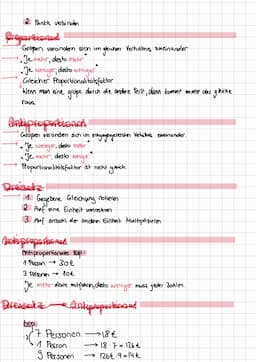 2. Punkte verbinden
Proportional
Größen verändern sich im gleichen Verhältnis zueinander
"Je mehr, desto mehr"
"Je weniger, desto weniger"
Gleicher Proportionalitätsfaktor
Wenn man eine größe durch die andere Teilt, dann kommt immer das gleiche
raus.
Antiproportional
Größen verändern sich im entgegengesetzten Verhältnis zueinander.
"Je weniger, desto mehr"
"Je mehr, desto weniger"
Proportionalitätsfaktor ist nicht gleich
Dreisatz
1. Gegebene Gleichung notieren
2 Auf eine Einheit umrechnen
3 Auf anzahl der andren Einheit Multiplizieren
Antiproportional
Antiproportionales Bsp:
1 Person → 30€
3 Personen → 10€
Je mehr dabei mitfahren, desto weniger muss jeder zahlen
Dreisatz → Antiproportional
bsp:
7 Personen → 18€
1 Person → 18·7 = 126€
9 Personen → 126€:9 = 14€